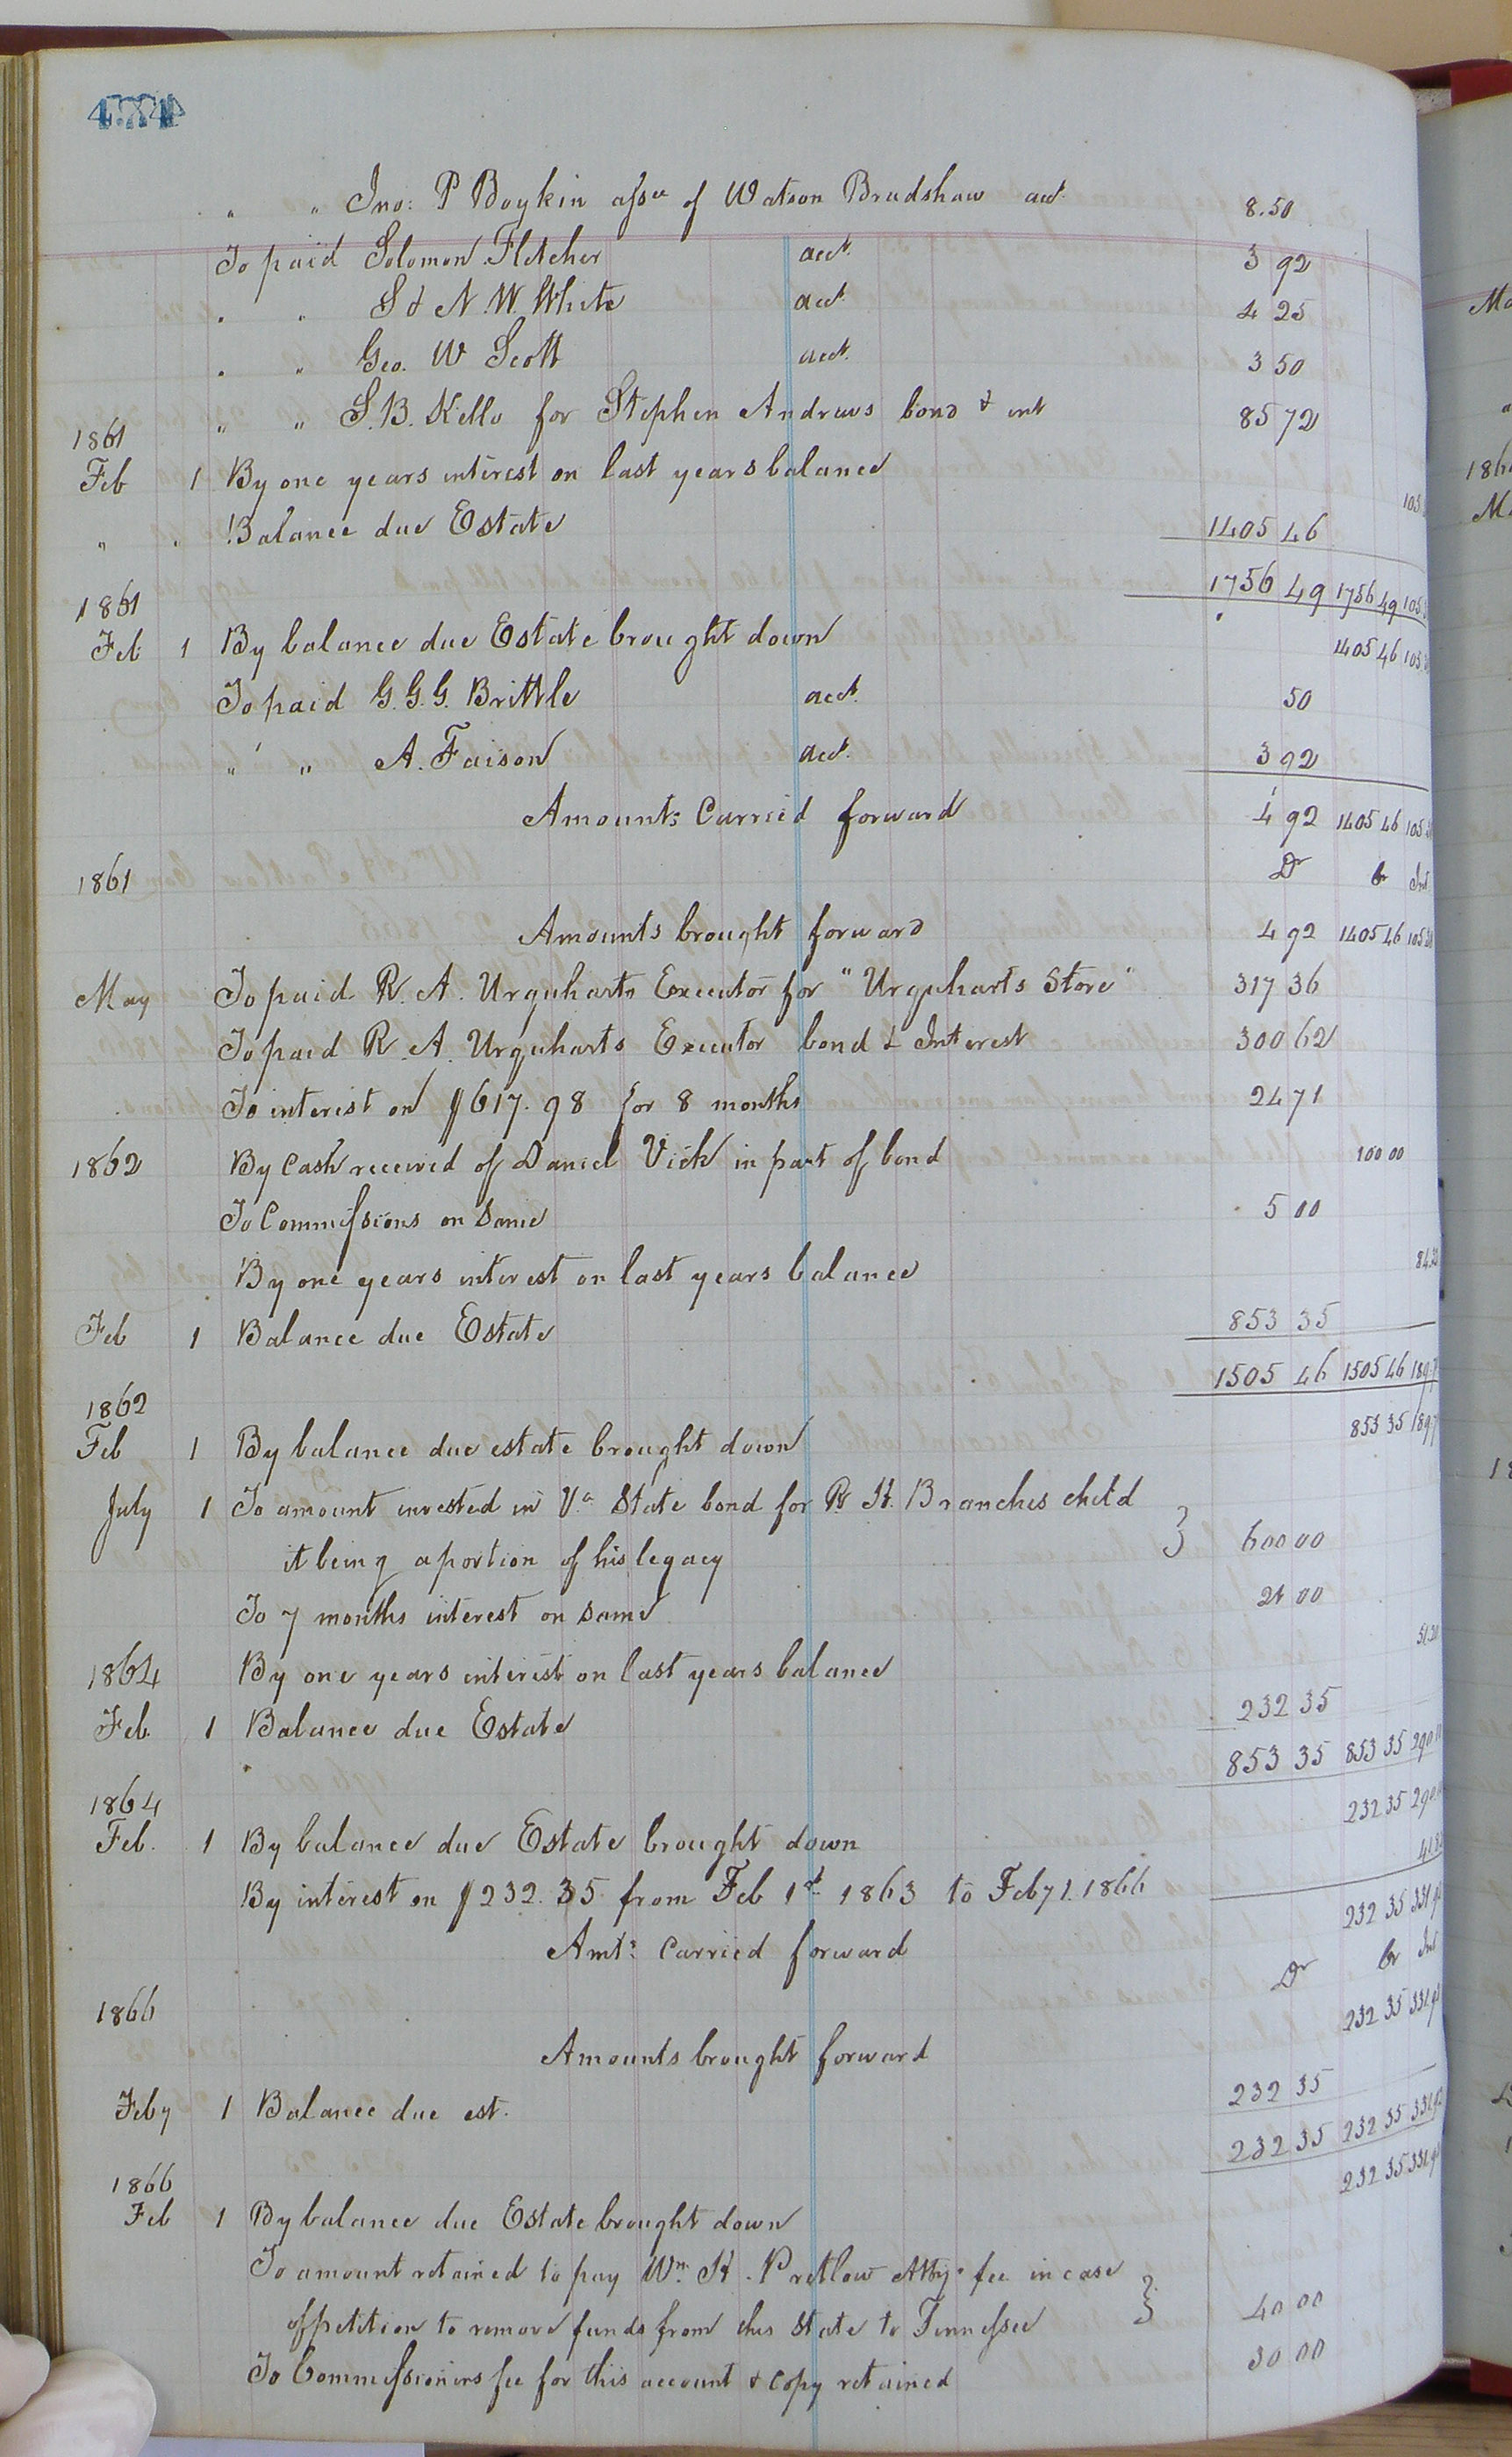 " " Jno: P Boykin assee of Watson Bradshaw act. 8.50
To paid Solomon Fletcher acct. 3 92
" " S & N. W. White acct 4 25
" " Geo. W Scott acct. 3 50
" " S. B. Kello for Stephen Andrews bond & int 85 72
1861
Feb 1 By one years interest on last years balance 105
" " Balance due Estate 1405 46
1756 49 1756 49 105
1861
Feb 1 By balance due Estate brought down 1405 46 105
To paid G. G. G. Brittle acct. 50
" " A. Faison acct. 3 92
Amounts Carried forward 4 92 1405 46 105
1861 Dr Cr Int
Amounts brought forward 4 92 1405 46 105
May To paid R. A. Urquharts Executor for "Urquharts Store" 317 36
To paid R. A. Urquharts Executor bond & Interest 300 62
To interest on $617.98 for 8 months 24 71
1862 By Cash received of Daniel Vick in part of bond 100 00
To Commissions on Same 5 00
By one years interest on last years balance 84
Feb 1 Balance due Estate 853 35
1505 46 1505 46 189
1862
Feb 1 By balance due estate brought down 853 35 189
July 1 To amount invested in Va State bond for R. H. Branches child
it being a portion of his legacy } 600 00
To 7 months interest on same 21 00
1864 By one years interest on last years balance 51
Feb. 1 Balance due Estate 232 35
853 35 853 35 290
1864
Feb. 1 By balance due Estate brought down 232 35 290
By interest on $232.35 from Feb 1st 1863 to Feby 1. 1866 41
Amts Carried forward 232 35 331
1866 Dr Cr Int
Amounts brought forward 232 35 331
Feby 1 Balance due est. 232 35
232 35 232 35 331
1866
Feb 1 By balance due Estate brought down 232 35 331
To amount retained to pay Wm. H. Pretlow Atty. fee in case
of petition to remove funds from this State to Tennessee } 40 00
To Commissioners fee for this account & copy retained 30 00